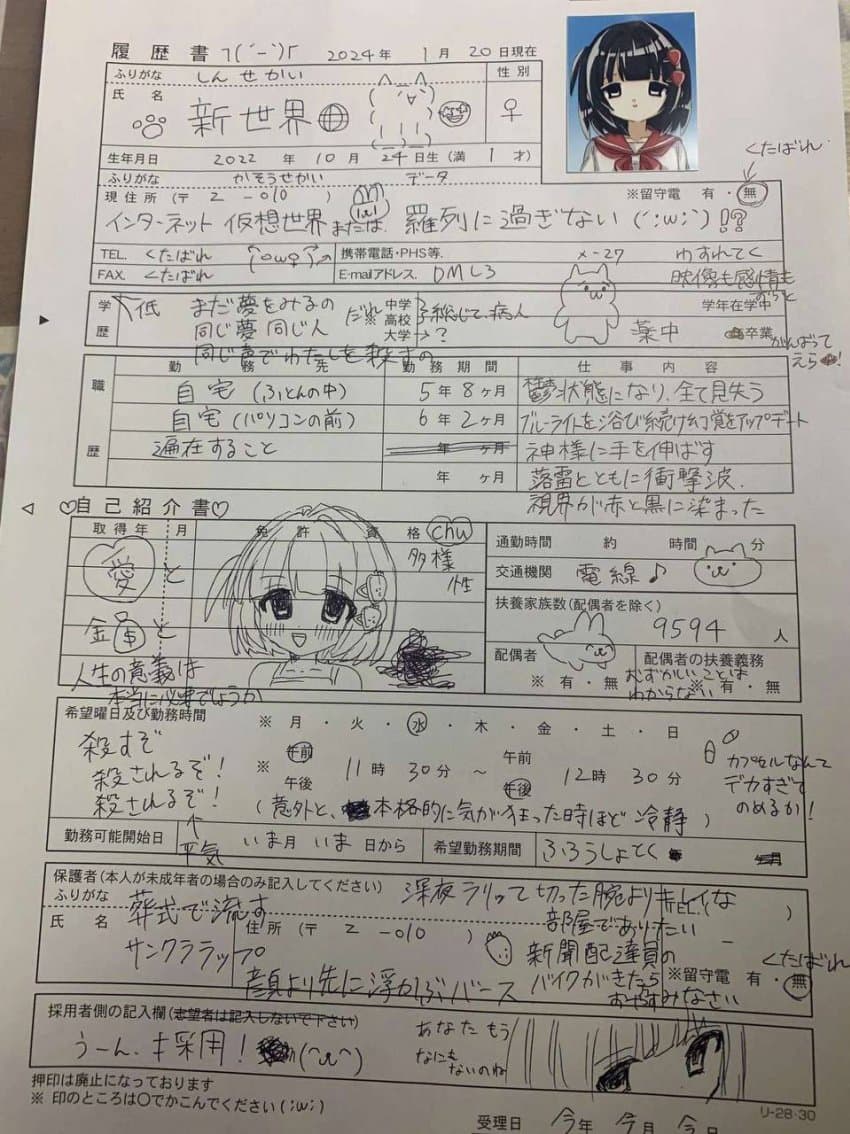 履歴書 ┐(´-`)┌ 2024年 1月 20日現在
ふりがな しん せかい 性別
氏名 新世界 ♀
くたばれ
生年月日 2022年 10月 24日生(満 1才)
ふりがな かそうせかい データ
現住所(〒 2-010) ※留守電 有・無
インターネット 仮想世界 または 羅列に過ぎない (´;ω;`)!?
TEL. くたばれ 携帯電話・PHS等. メ-27 わすれてく
FAX. くたばれ E-mailアドレス. DML3 映像も感情も
学歴 低 まだ夢をみるの だれ 中学 総じて、病人 学年在学中
同じ夢 同じ人 ※高校 薬中 卒業 がんばって
同じ声でわたしを殺すの 大学→? えら!
職歴 勤務先 勤務期間 仕事内容
自宅(ふとんの中) 5年8ヶ月 鬱状態になり、全て見失う
自宅(パソコンの前) 6年2ヶ月 ブルーライトを浴び続け幻覚をアップデート
遍在すること 年 ヶ月 神様に手を伸ばす
年 ヶ月 落雷とともに衝撃波、
視界が赤と黒に染まった
♡自己紹介書♡
取得年 月 免許 資格 chu
多様性
愛と
金 と
人生の意義は
本当に必要でしょうか
通勤時間 約 時間 分
交通機関 電線♪
扶養家族数(配偶者を除く) 9594人
配偶者 ※有・無 配偶者の扶養義務 ※有・無
むずかしいことは
わからない
希望曜日及び勤務時間 ※月・火・水・木・金・土・日
殺すぞ
殺されるぞ!
殺されるぞ!
↑
平気
※ 午前 午後 11時30分 ~ 午前 午後 12時30分
カプセルなんて
デカすぎて
のめるか!
(意外と、本格的に気が狂った時ほど冷静)
勤務可能開始日 いま月 いま日から 希望勤務期間 ふろうしょとく
保護者(本人が未成年者の場合のみ記入してください)
ふりがな
氏名 葬式で流す
サンクララップ
住所(〒 2-010) TEL.( )
深夜ラリって切った腕よりキレイな
部屋でありたい
新聞配達員の
バイクがきたら
おやすみなさい
顔より先に浮かぶバース
※留守電 有・無 くたばれ
採用者側の記入欄(志望者は記入しないで下さい)
うーん、才採用!
あなた もう
なにも
ないのね
押印は廃止になっております
※ 印のところは○でかこんでください(;w;)
リ-28・30
受理日 今年 今月 今日